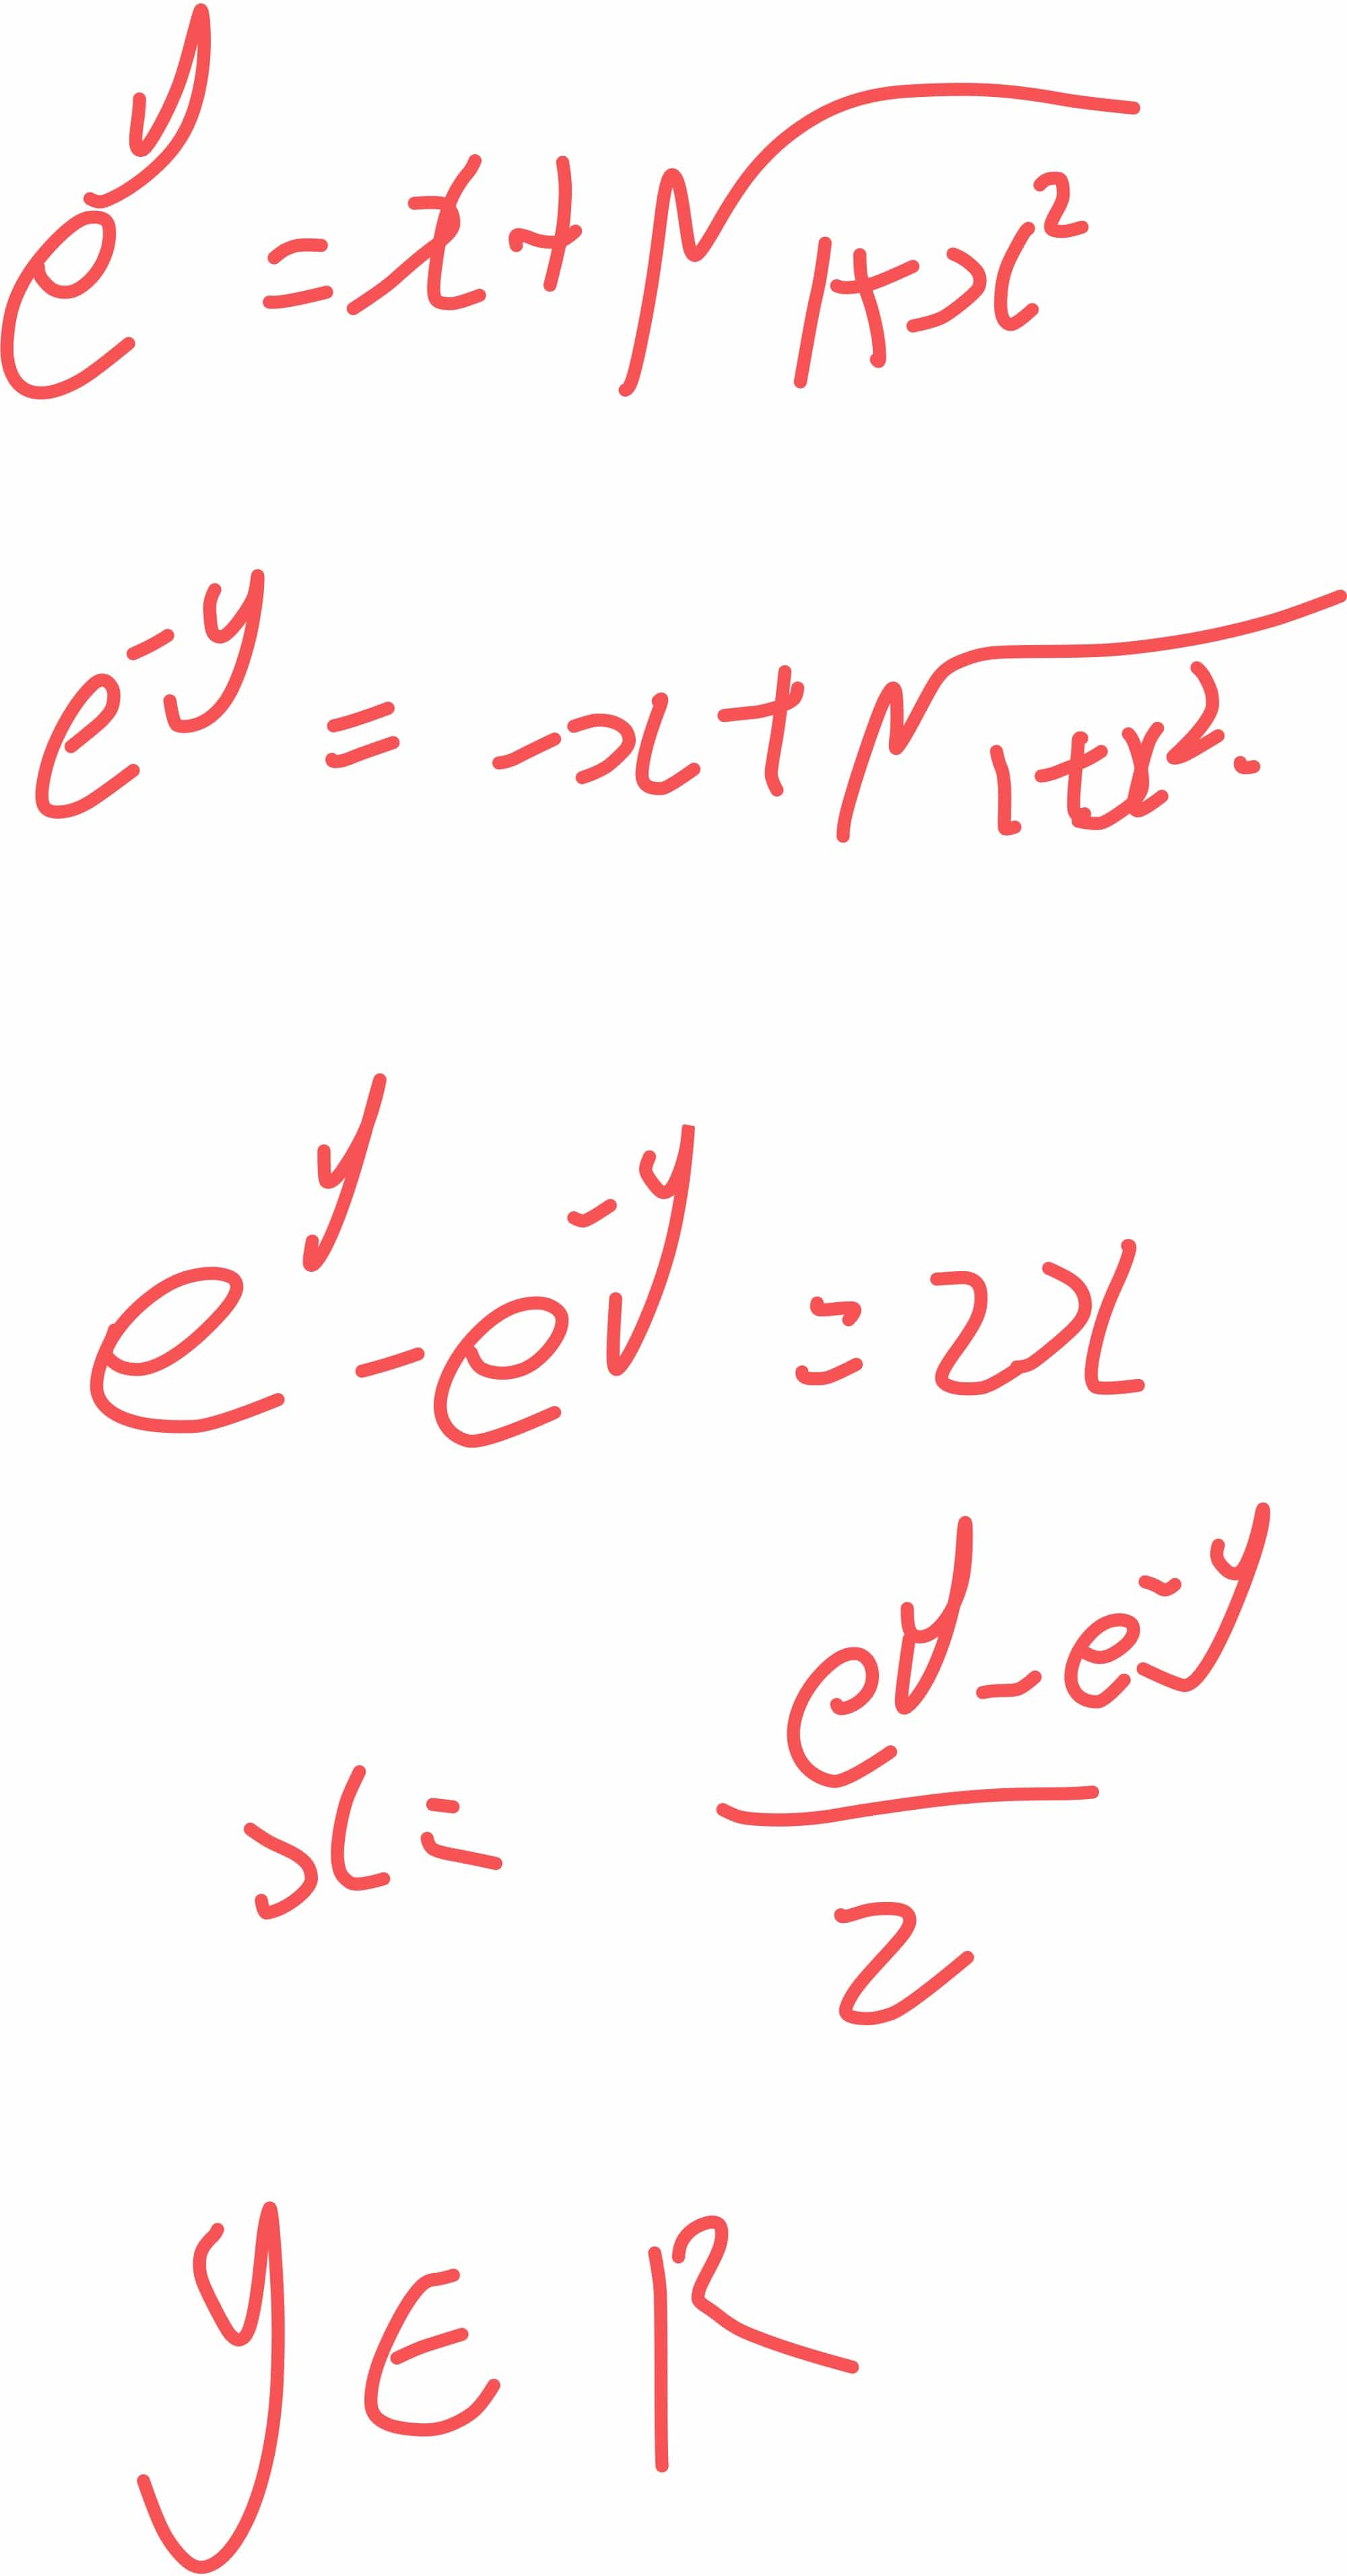 e^y = x + √(1+x²)
e^-y = -x + √(1+x²).
e^y - e^-y = 2x
x = (e^y - e^-y)/2
y ∈ R